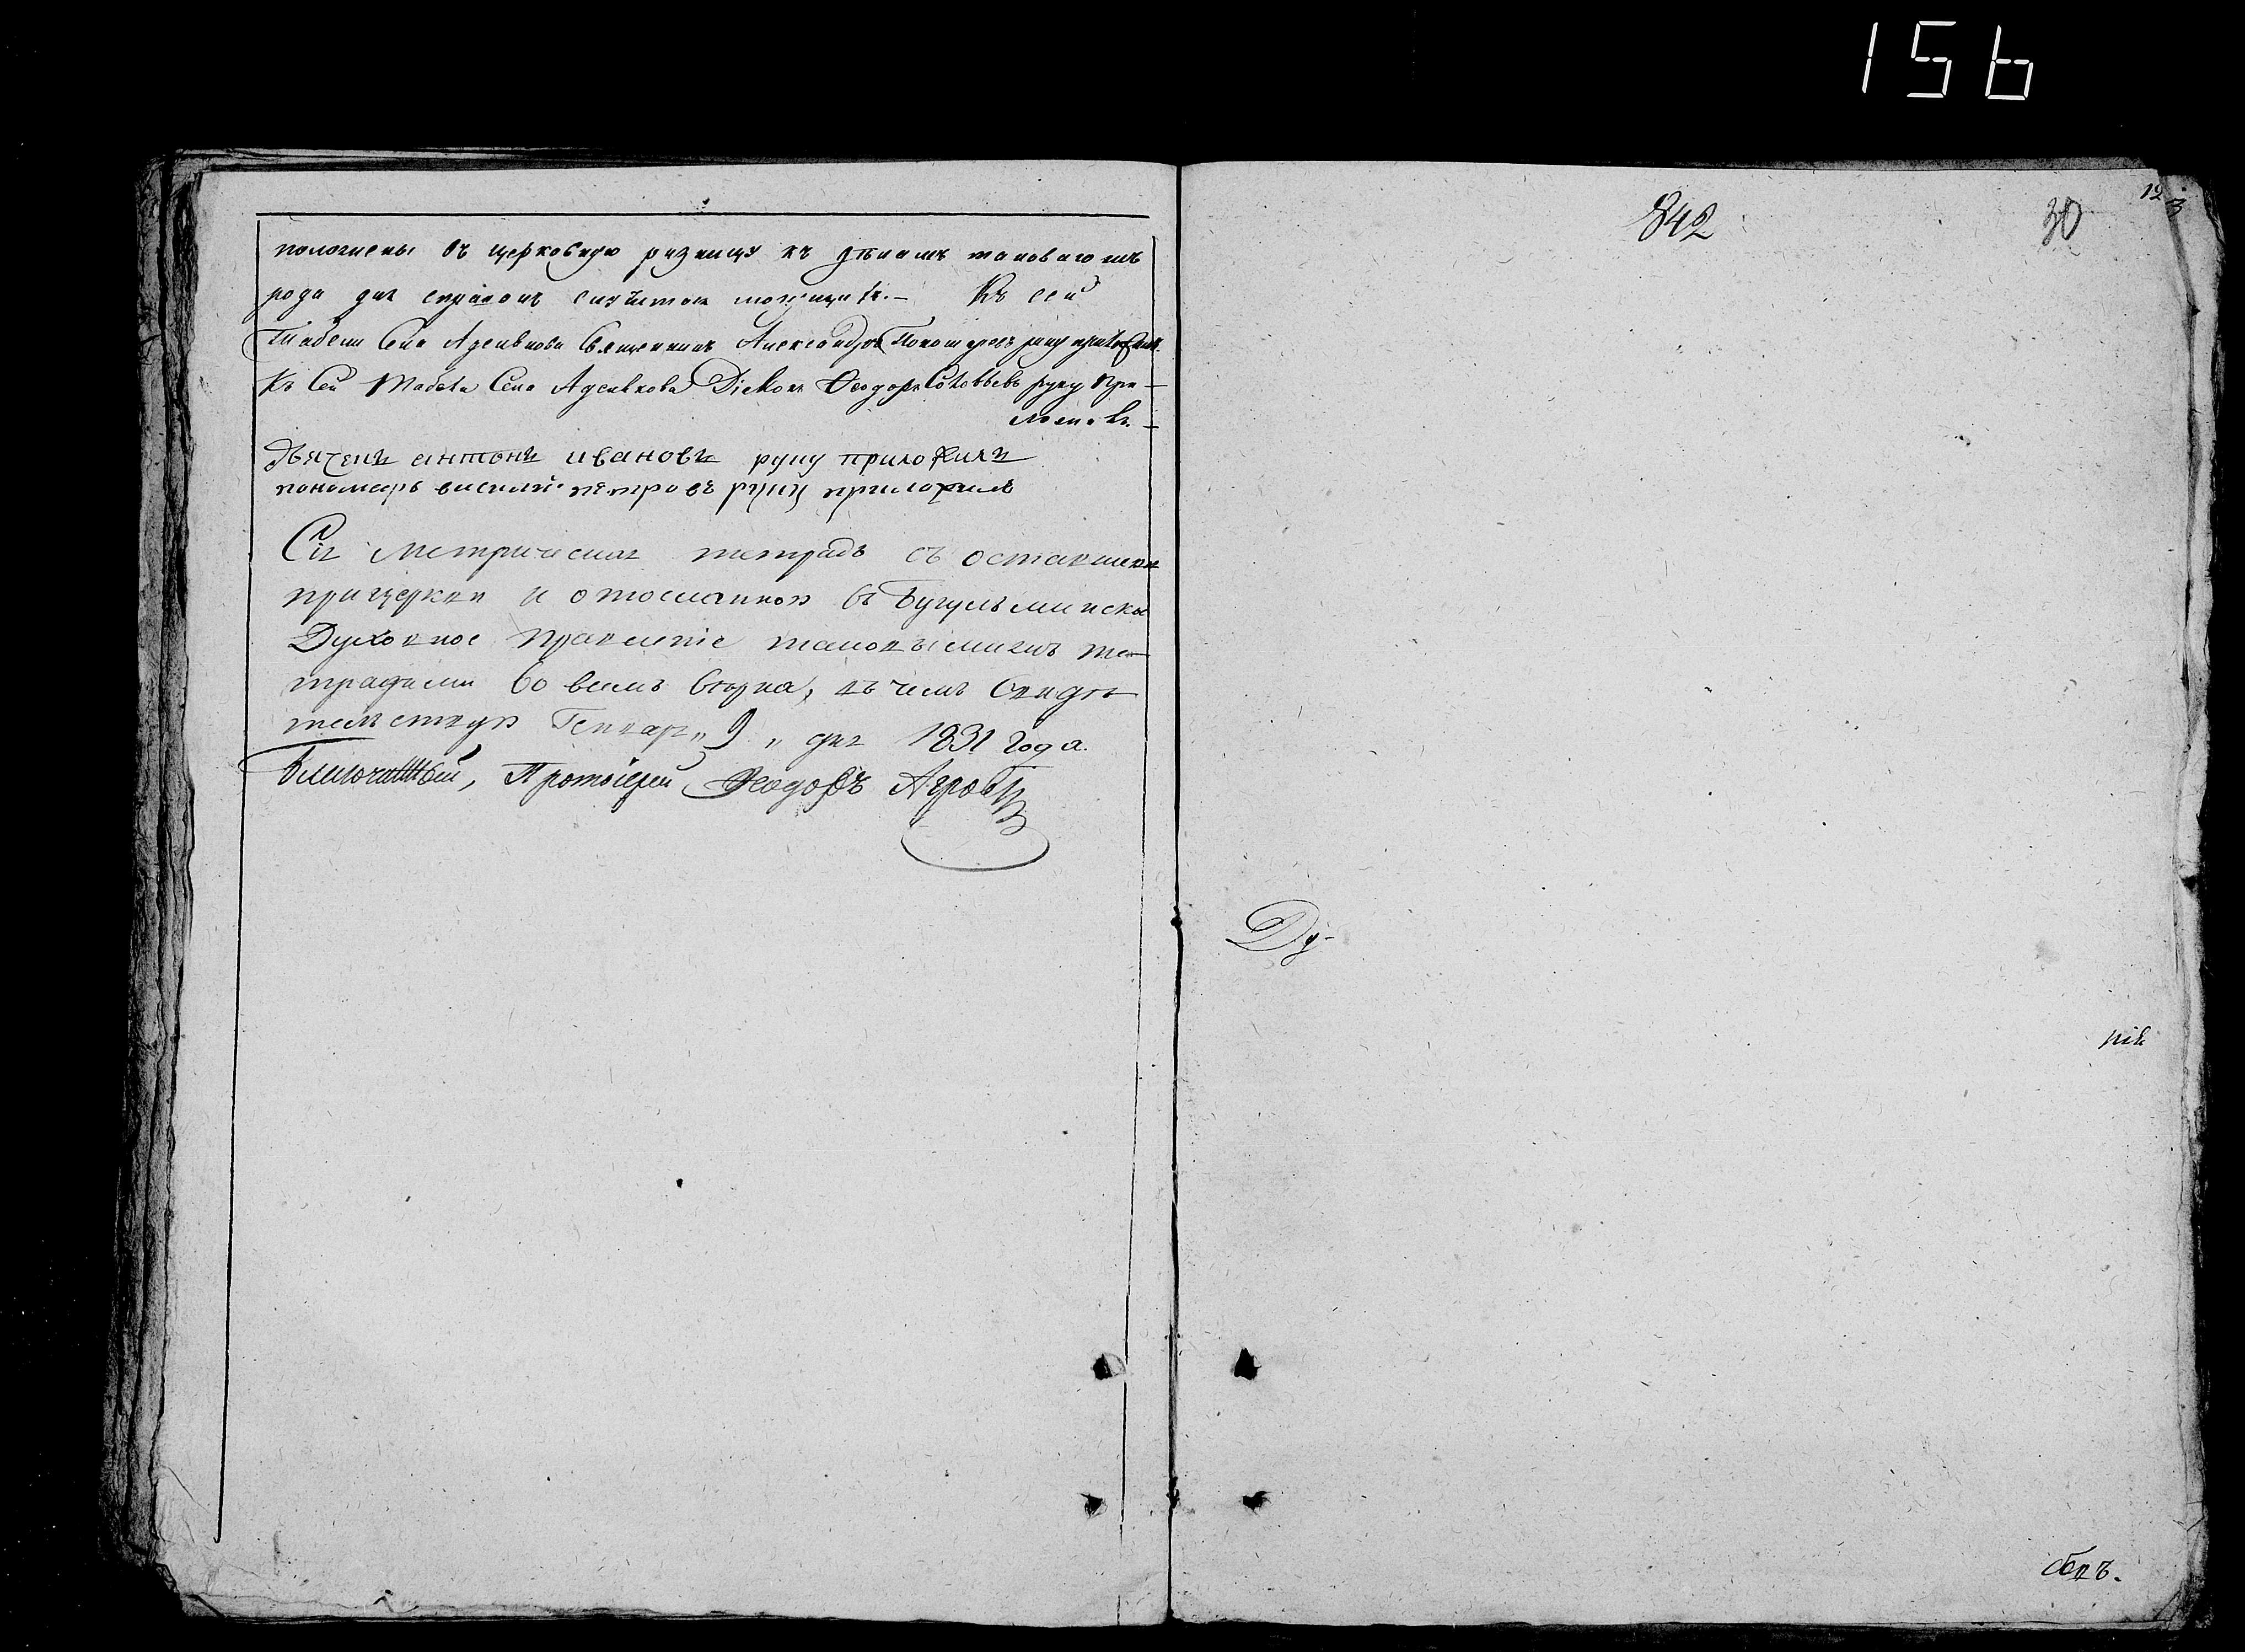 156
положены въ церковную ризницу къ дѣламъ таковагожъ
рода для справокъ
Къ сей
Табели Села Адельякова Священникъ Александръ руку приложилъ.
Къ Сей Села Адельякова Діаконъ Ѳеодоръ Соловьевъ руку при-
ложилъ.
дьячекъ антонъ ивановъ руку приложилъ
пономарь василий петровъ руку приложилъ
Сія метрическая тетрадь съ оставшеюся
при церкви и отосланною въ Бугульминское
Духовное Правленіе таковымижъ те-
традями во всемъ вѣрна, въ чемъ свидѣ
тельствую Генваря „9„ дня 1831 года.
Благочинный, Протоіерей Ѳеодоръ
842
30
123
Ду-
рія